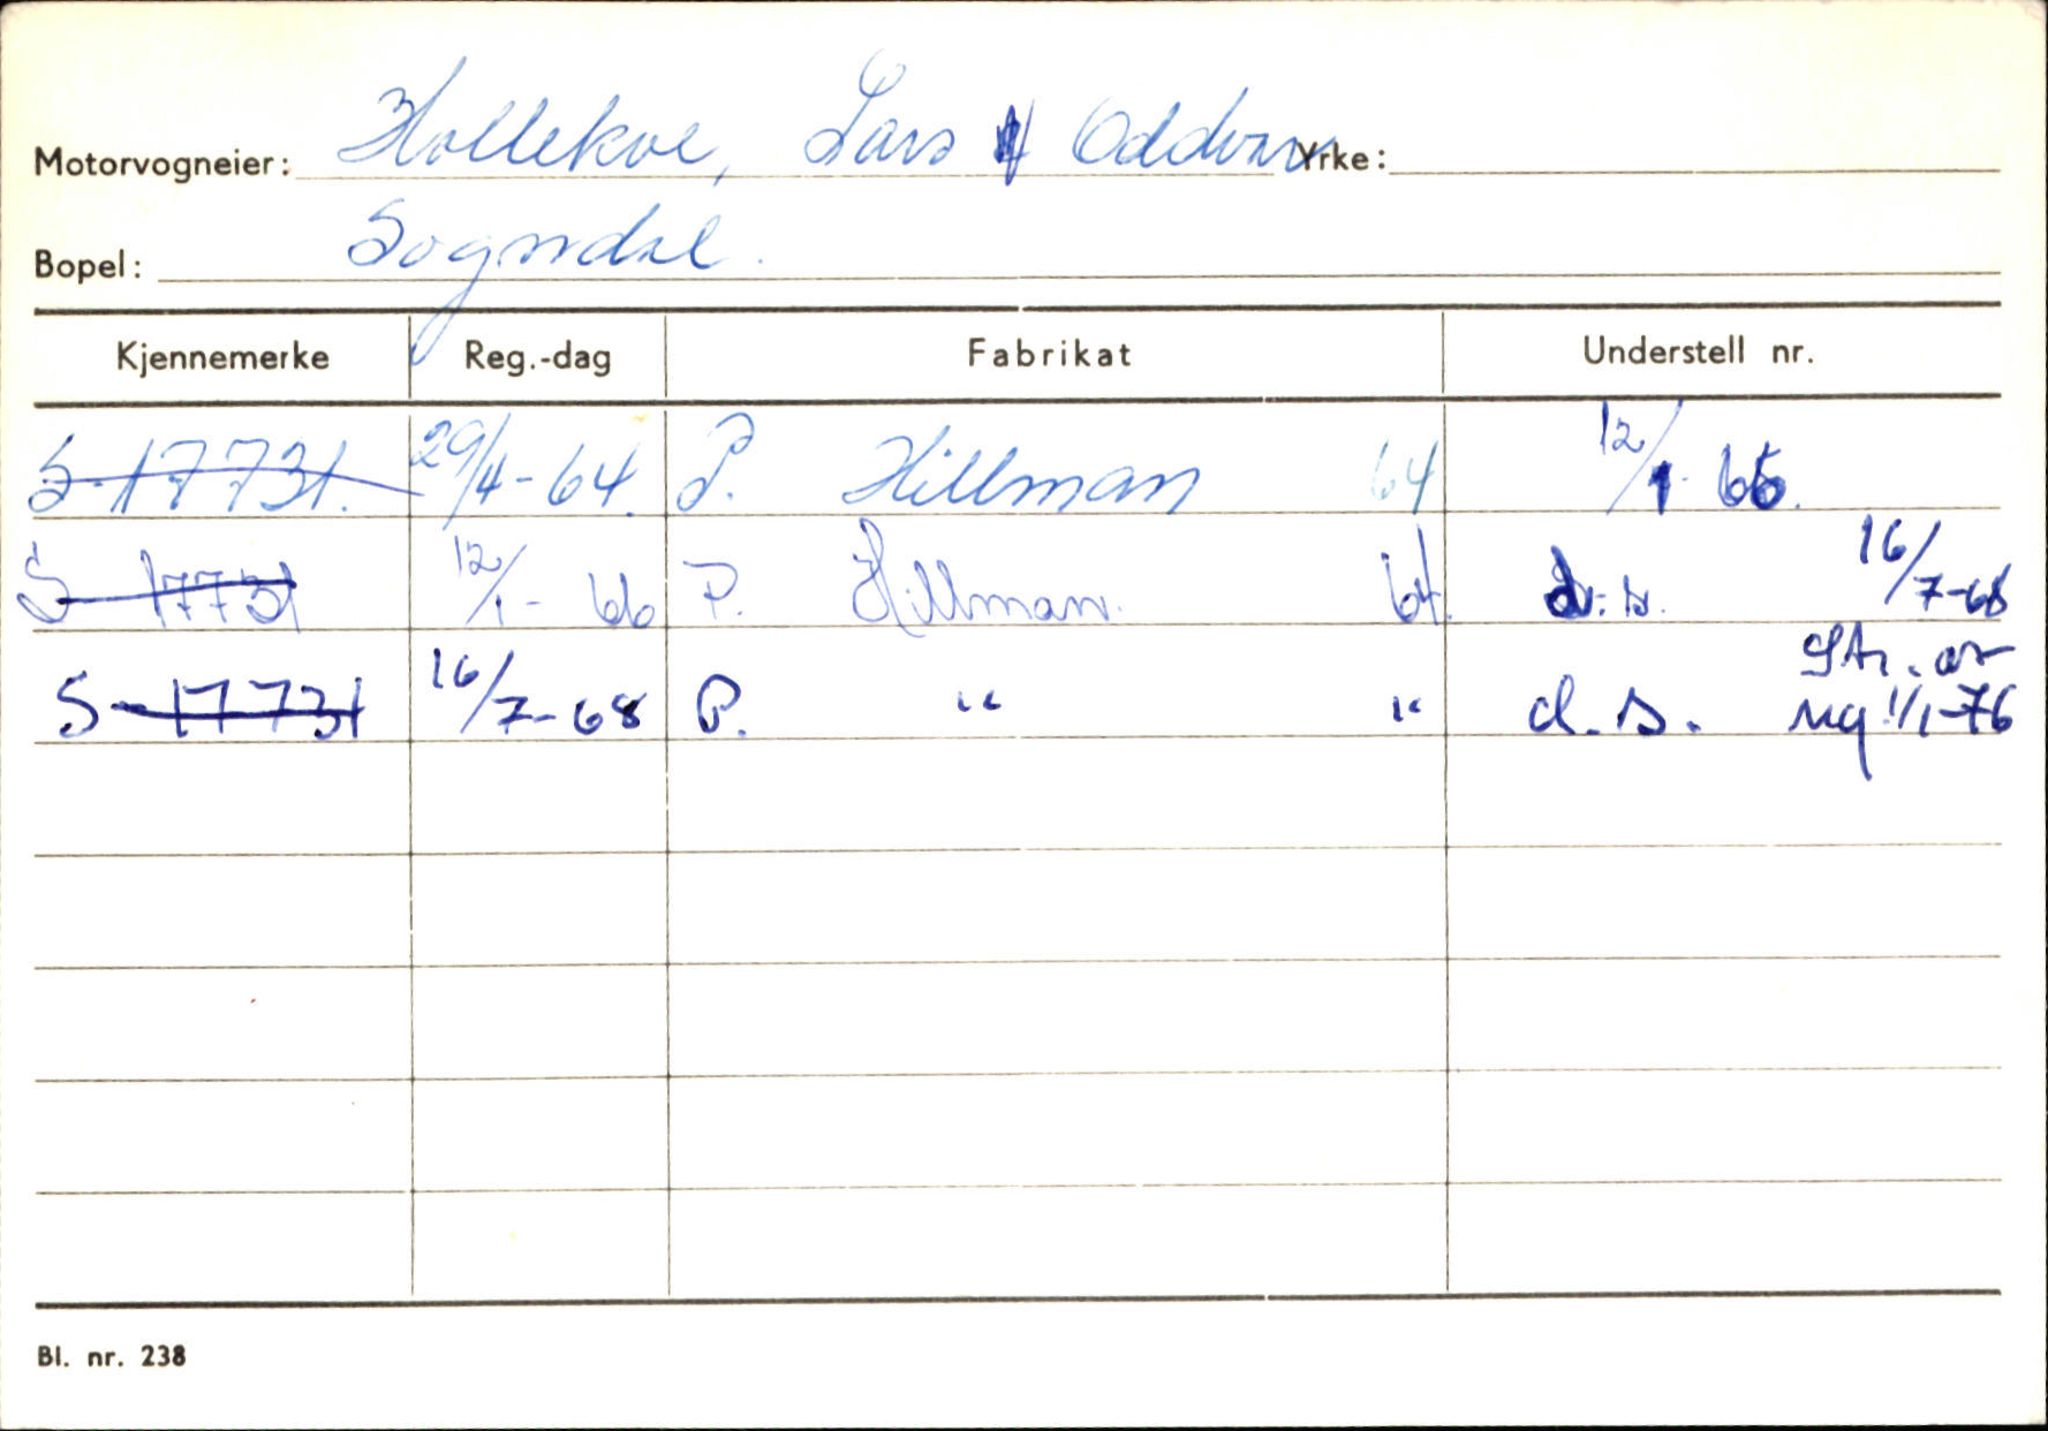 Motorvogneier: Hollekve, Lars Oddvar Yrke:
Bopel: Sogndal.
Kjennemerke Reg.-dag Fabrikat Understell nr.
S-17731. 29/4-64. P. Hillman 64 12/1-66.
S-17731 12/1-66 P. Hillman. 64. d.s. 16/7-68
S-17731 16/7-68 P. " " d.s. Str. av reg 1/1-76
Bl. nr. 238